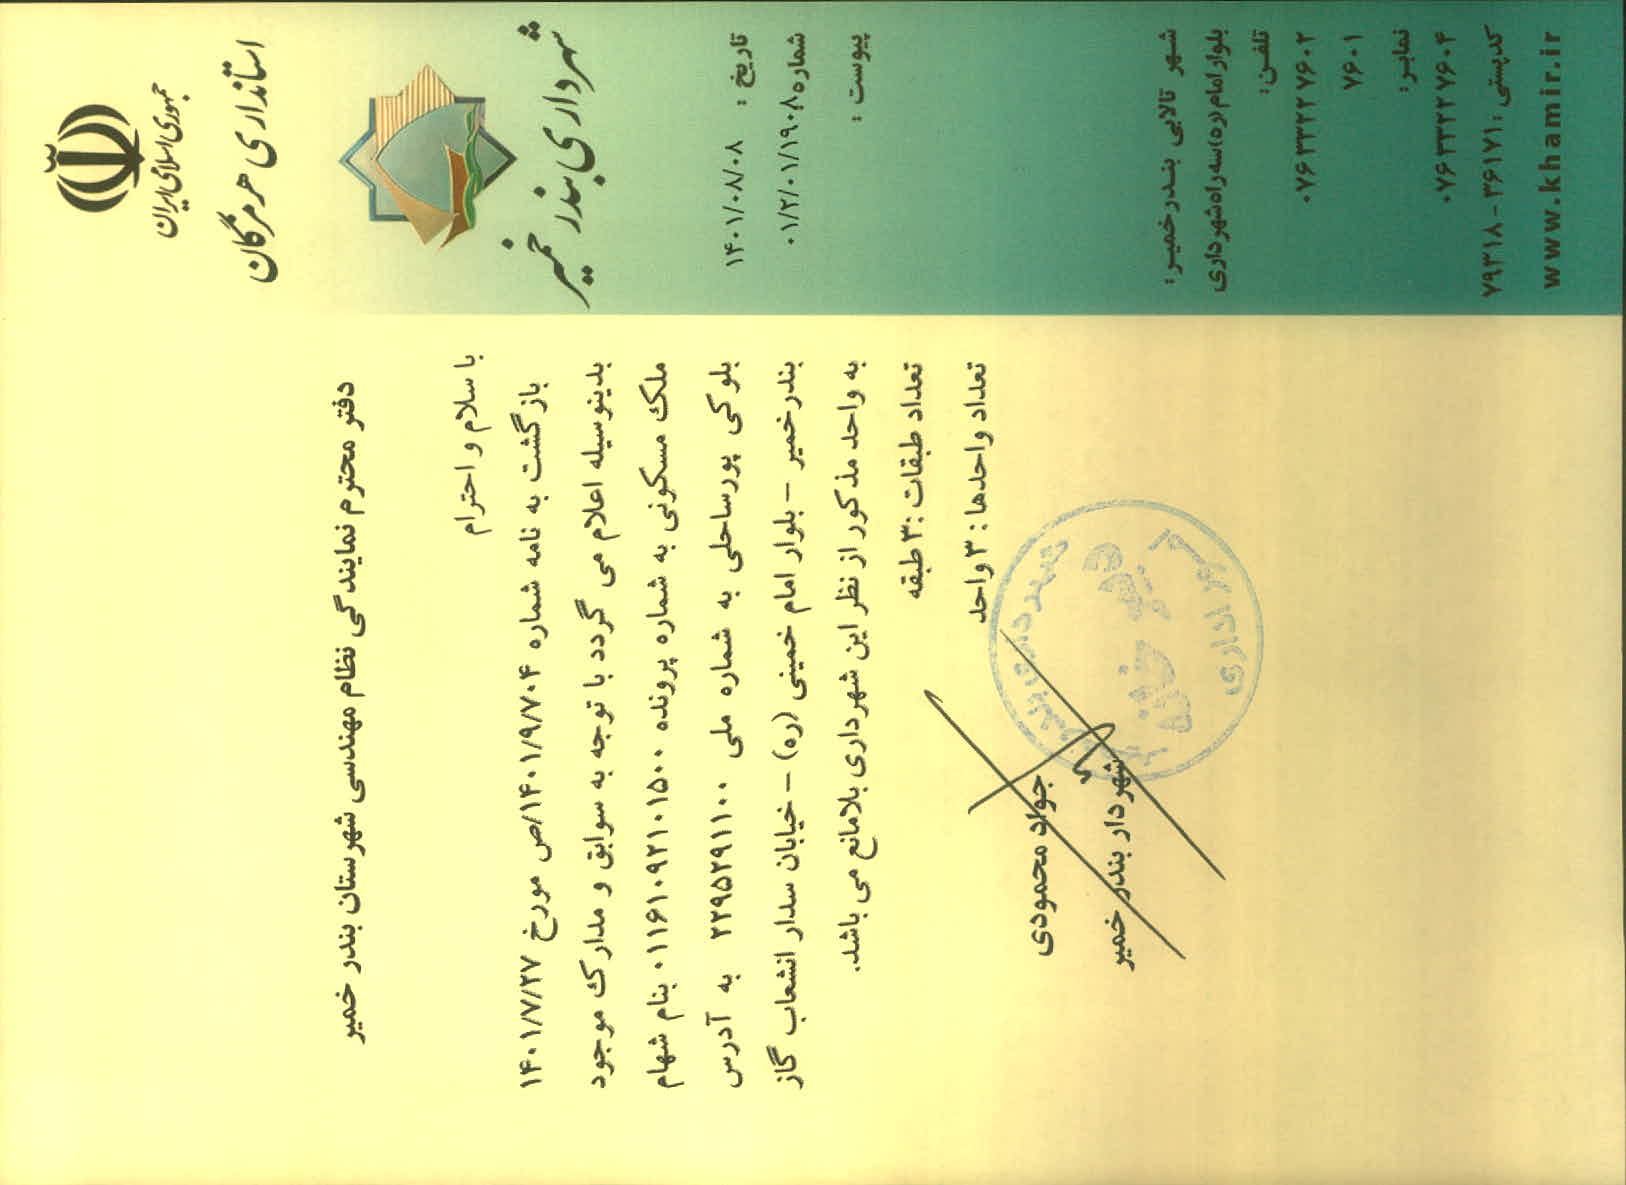 جمهوری اسلامی ایران
استانداری هرمزگان
شهرداری بندر خمیر
تاریخ : ۱۴۰۱/۰۸/۰۸
شماره: ۰۱/۲/۰۱/۱۹۰۸
پیوست :
شهر تالابی بندرخمیر:
بلوار امام (ره) سه راه شهرداری
تلفن:
۰۷۶۳۳۲۲۷۶۰۲
۷۶۰۱
نمابر:
۰۷۶۳۳۲۲۷۶۰۴
کدپستی: ۳۶۱۷۱ - ۷۹۳۱۸
www.khamir.ir
دفتر محترم نمایندگی نظام مهندسی شهرستان بندر خمیر
با سلام و احترام
بازگشت به نامه شماره ۱۴۰۱/۹/۷۰۴/ص مورخ ۱۴۰۱/۷/۲۷
بدینوسیله اعلام می گردد با توجه به سوابق و مدارک موجود
ملک مسکونی به شماره پرونده ۰۱۱۶۱۰۹۲۱۰۱۵۰۰ بنام شهام
بلوکی پورساحلی به شماره ملی ۲۲۹۵۲۹۱۱۰۰ به آدرس
بندرخمیر - بلوار امام خمینی (ره) - خیابان سدار انشعاب گاز
به واحد مذکور از نظر این شهرداری بلامانع می باشد.
تعداد طبقات :۳ طبقه
تعداد واحدها : ۳ واحد
جواد محمودی
شهردار بندر خمیر
شهرداری بندر خمیر
دبیرخانه
امور اداری